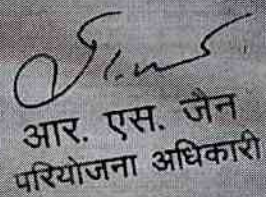 आर. एस. जैन
परियोजना अधिकारी